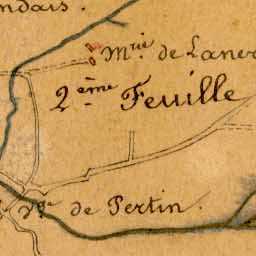 ndais.
M.rie de Laner
2.ème Feuille
de Pertin.